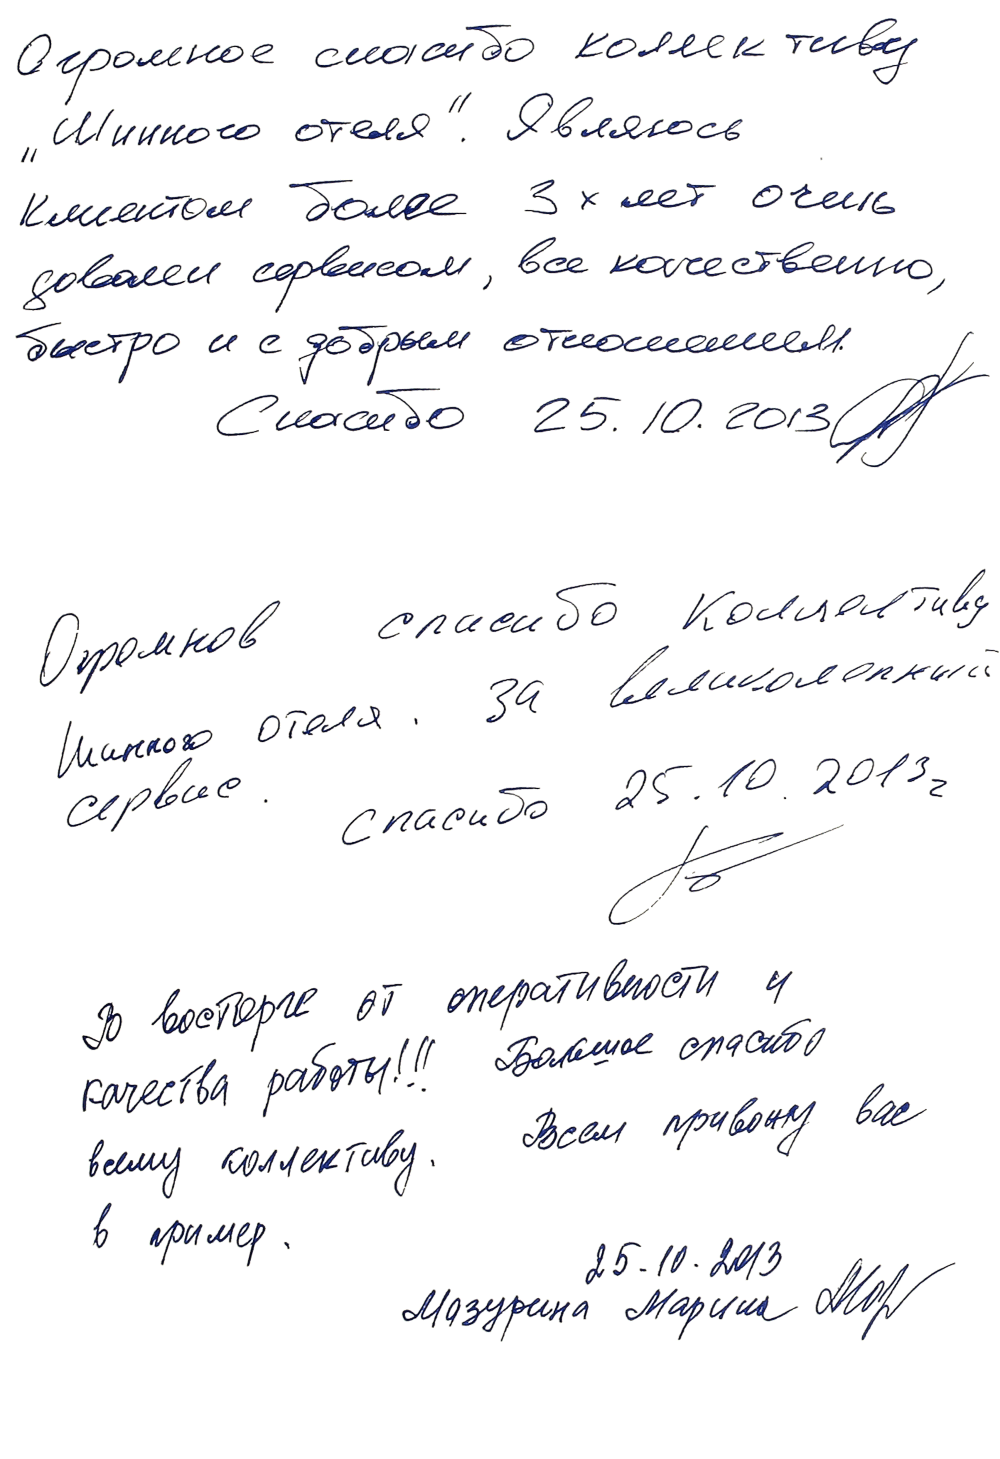 Огромное спасибо коллективу
„Шинного отеля". Являюсь
клиентом более 3х лет очень
доволен сервисом, все качественно,
быстро и с добрым отношением.
Спасибо 25.10.2013
Огромное спасибо коллективу
Шинного отеля. За великолепный
сервис. Спасибо 25.10.2013г
В восторге от оперативности и
качества работы!!! Большое спасибо
всему коллективу. Всем привожу вас
в пример.
25.10.2013
Мазурина Марина